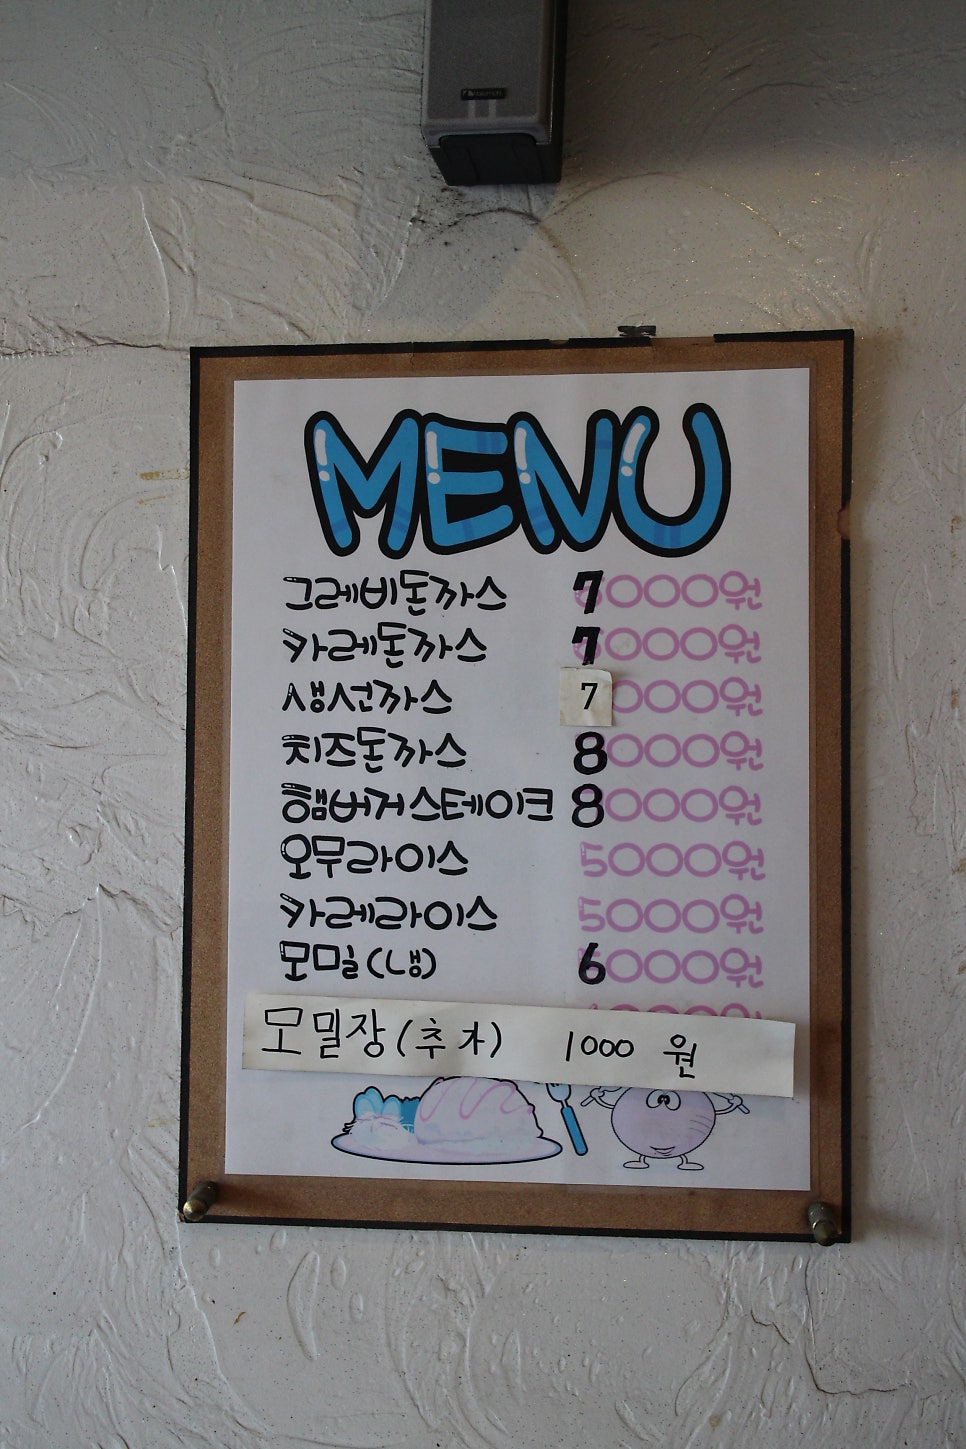 MENU
그레비돈까스 7000원
카레돈까스 7000원
생선까스 7000원
치즈돈까스 8000원
햄버거스테이크 8000원
오무라이스 5000원
카레라이스 5000원
모밀(냉) 6000원
모밀장(추가) 1000 원